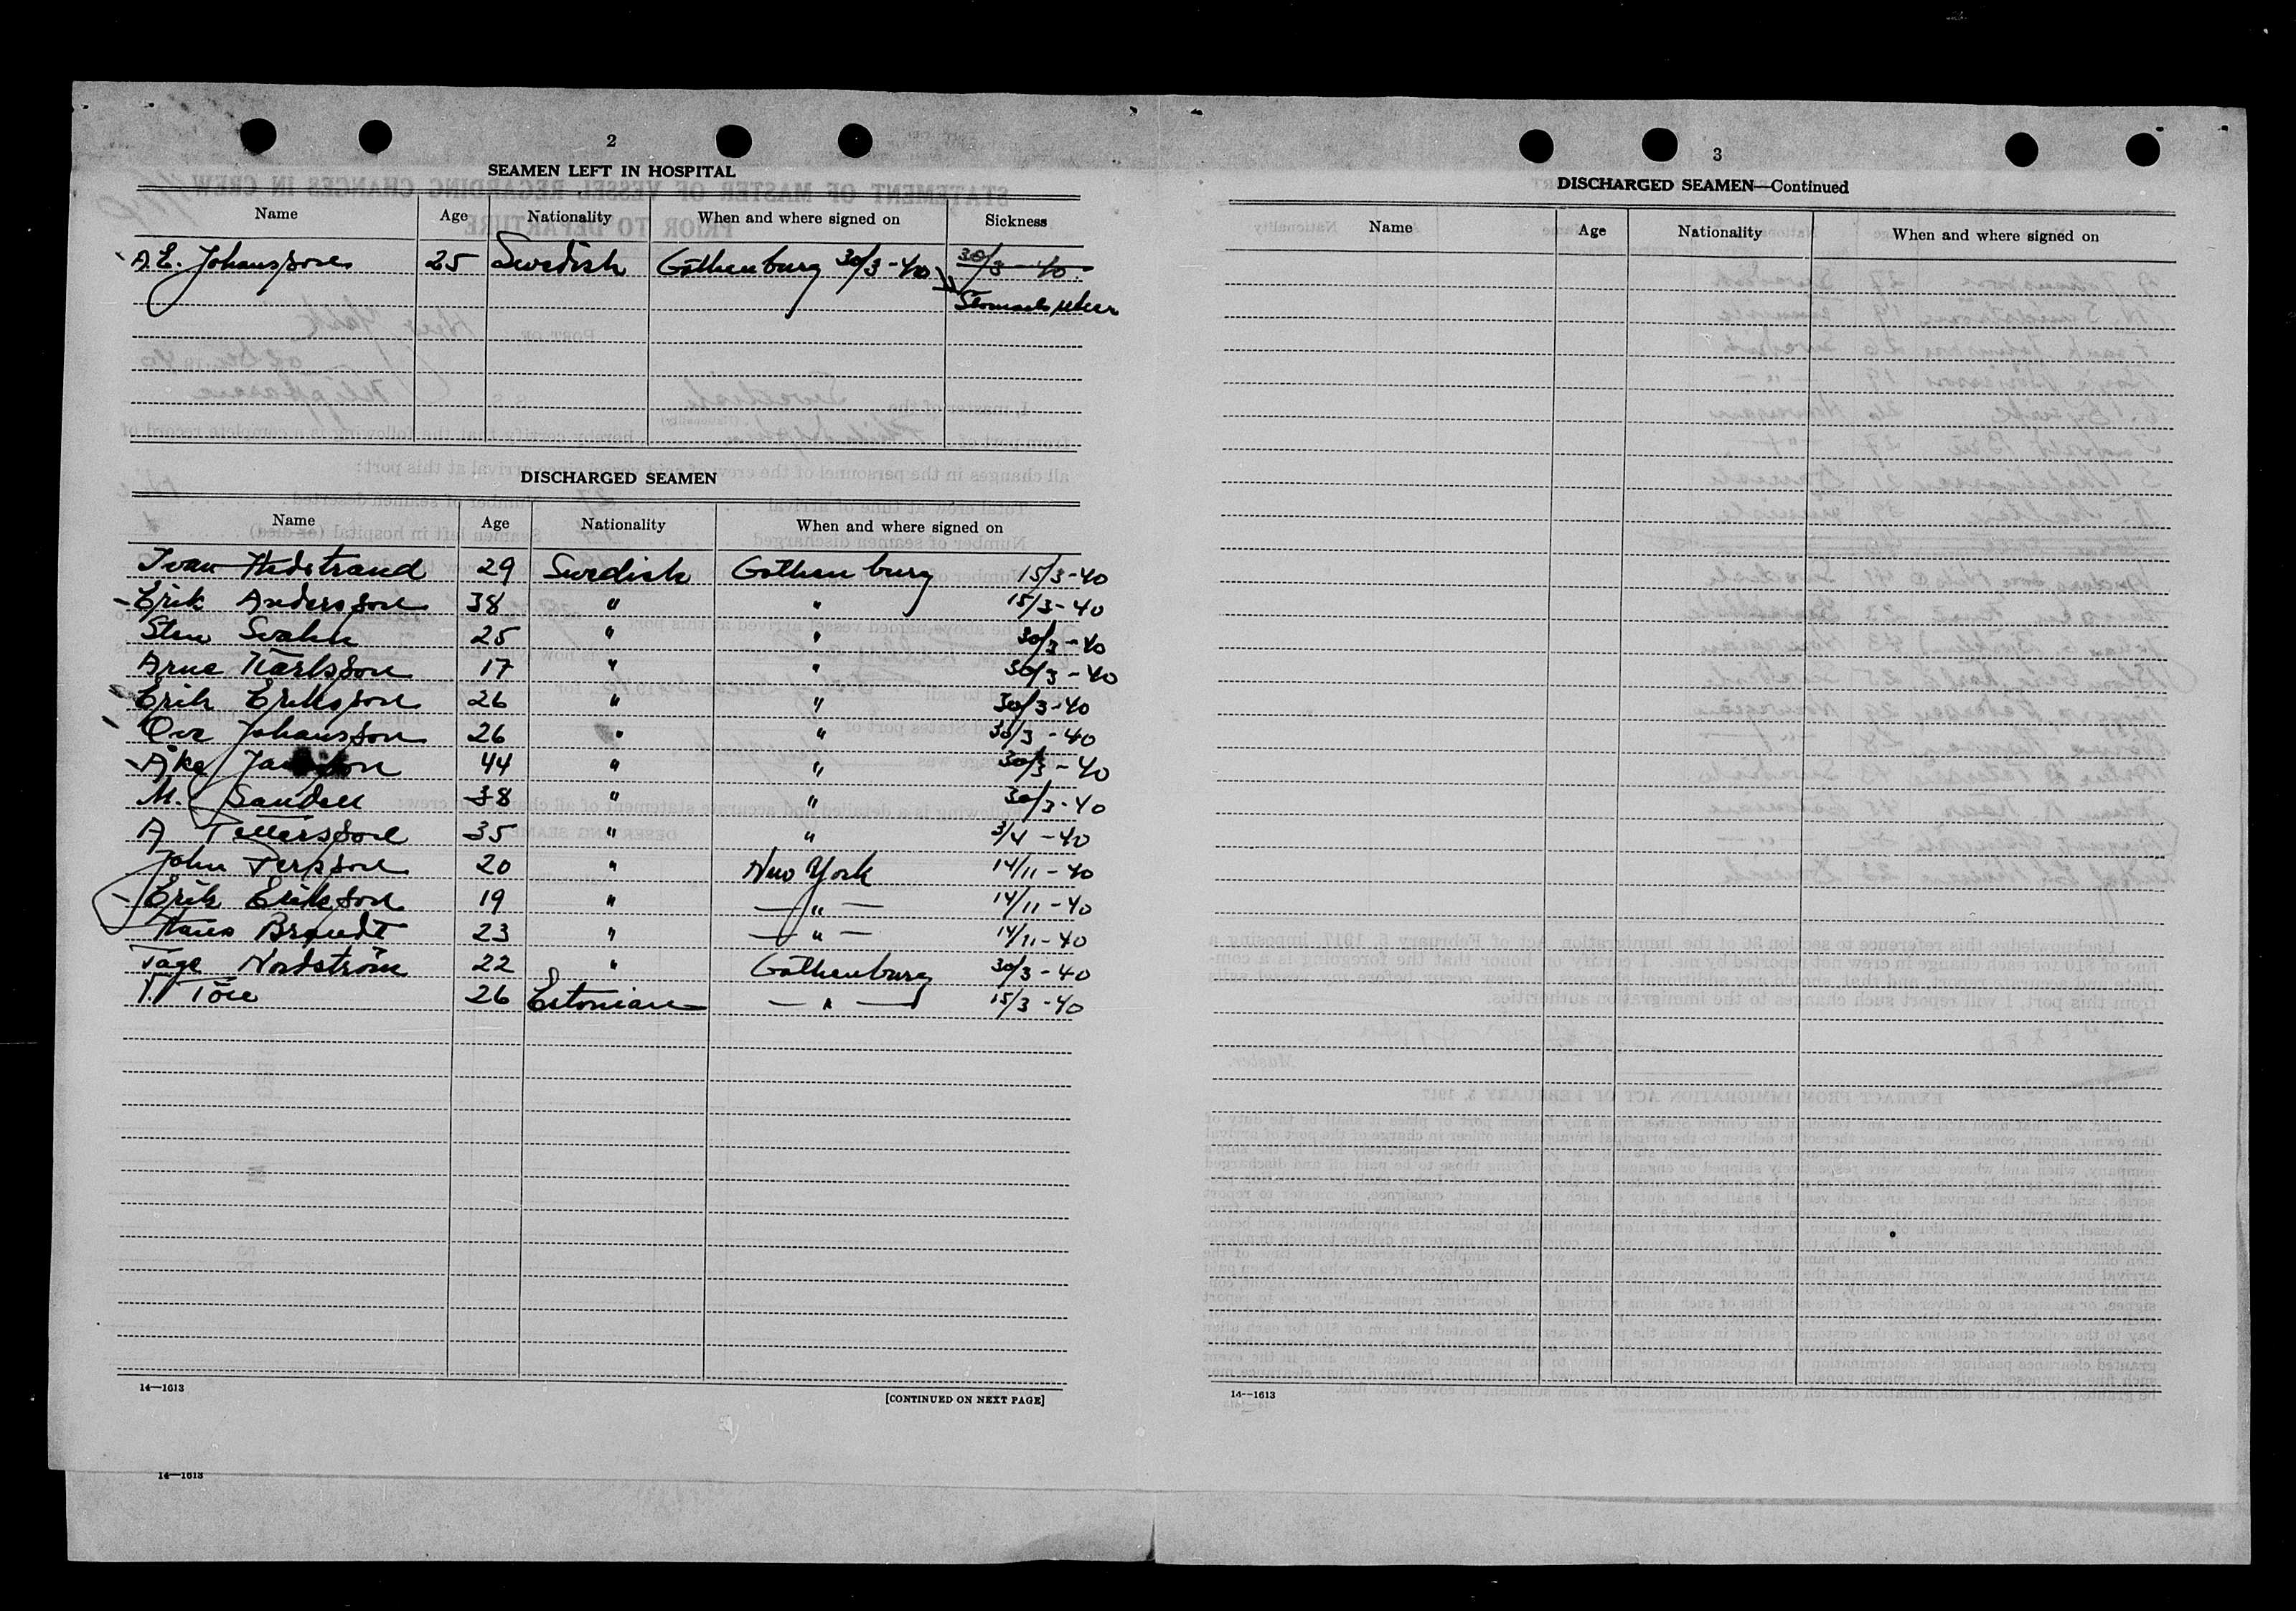 2
SEAMEN LEFT IN HOSPITAL
Name Age Nationality When and where signed on Sickness
A.E. Johansson 25 Swedish Gothenburg 30/3-40 30/3-40
Stomach ulcer
DISCHARGED SEAMEN
Name Age Nationality When and where signed on
Ivan Hedstrand 29 Swedish Gothenburg 15/3-40
Erik Andersson 38 " " 15/3-40
Sten Svahn 25 " " 30/3-40
Arne Karlsson 17 " " 30/3-40
Erik Eriksson 26 " " 30/3-40
Ove Johansson 26 " " 30/3-40
Åke 44 " " 30/3-40
M. Sandell 38 " " 30/3-40
A Pettersson 35 " " 3/4-40
John Persson 20 " New York 14/11-40
Erik Erikson 19 " —"— 14/11-40
Hans Brandt 23 " —"— 14/11-40
Tage Nordström 22 " Gothenburg 30/3-40
26 Estonian —"— 15/3-40
14—1613
[CONTINUED ON NEXT PAGE]
14—1613
3
DISCHARGED SEAMEN—Continued
Name Age Nationality When and where signed on
14—1613